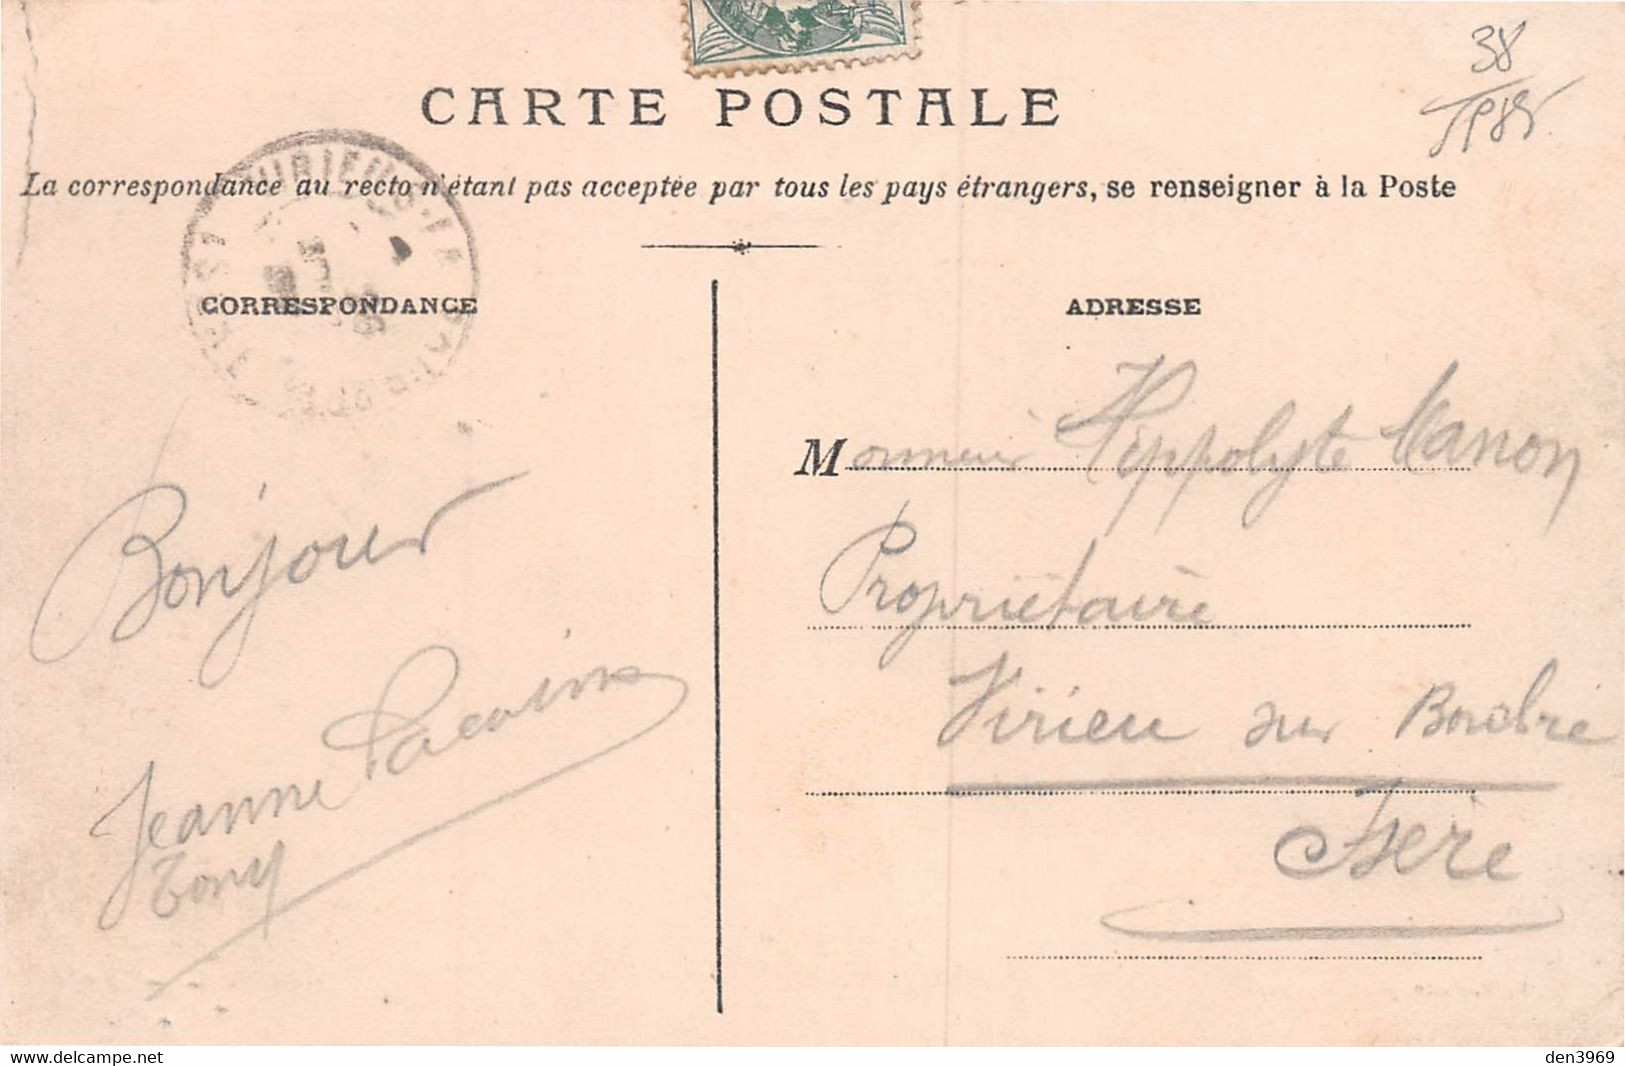 38
CARTE POSTALE
La correspondance au recto n'étant pas acceptée par tous les pays étrangers, se renseigner à la Poste
CORRESPONDANCE
ADRESSE
Monsieur Hippolyte Manon
Propriétaire
Virieu sur Bourbre
Isère
Bonjour
Jeanne
Tony
delcampe.net
den3969